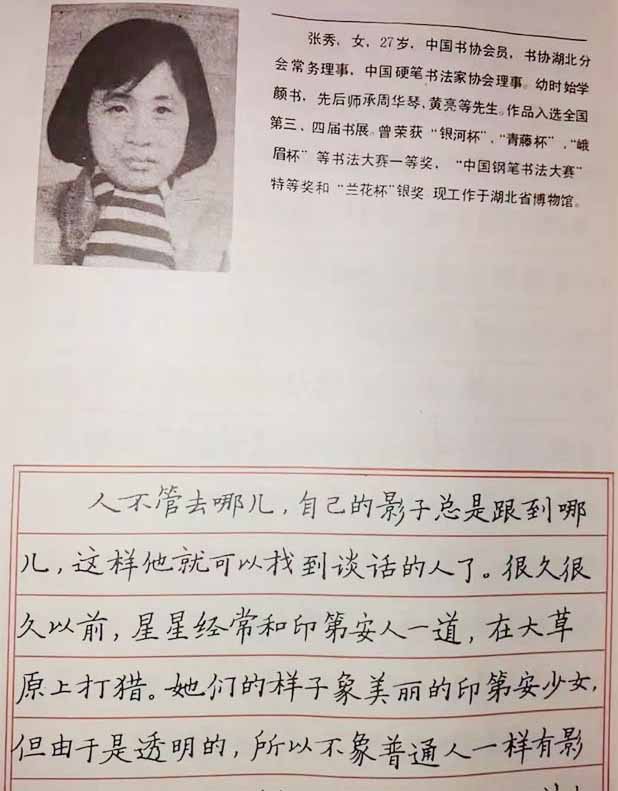 张秀，女，27岁，中国书协会员，书协湖北分
会常务理事，中国硬笔书法家协会理事。幼时始学
颜书，先后师承周华琴、黄亮等先生。作品入选全国
第三、四届书展。曾荣获“银河杯”，“青藤杯”，“峨
眉杯”等书法大赛一等奖，“中国钢笔书法大赛”
特等奖和“兰花杯”银奖 现工作于湖北省博物馆。
人不管去哪儿，自己的影子总是跟到哪
儿，这样他就可以找到谈话的人了。很久很
久以前，星星经常和印第安人一道，在大草
原上打猎。她们的样子象美丽的印第安少女，
但由于是透明的，所以不象普通人一样有影